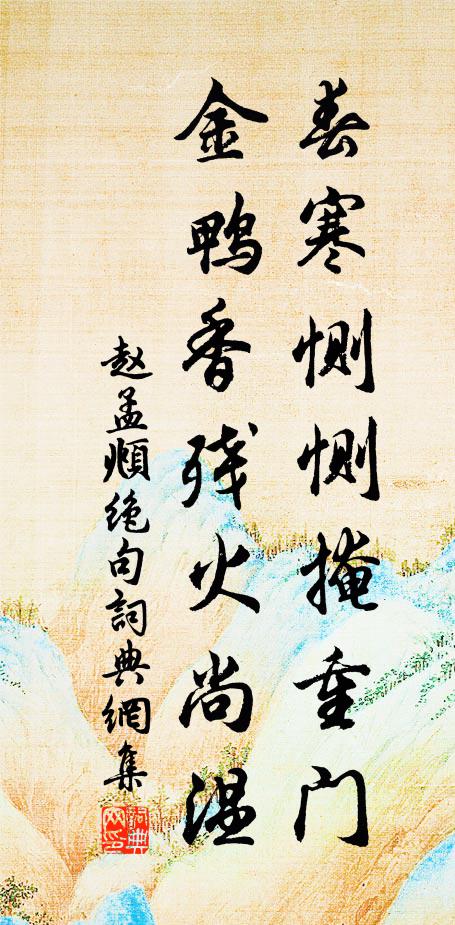 春寒恻恻掩重门
金鸭香残火尚温
赵孟頫绝句詞典網集
詞典